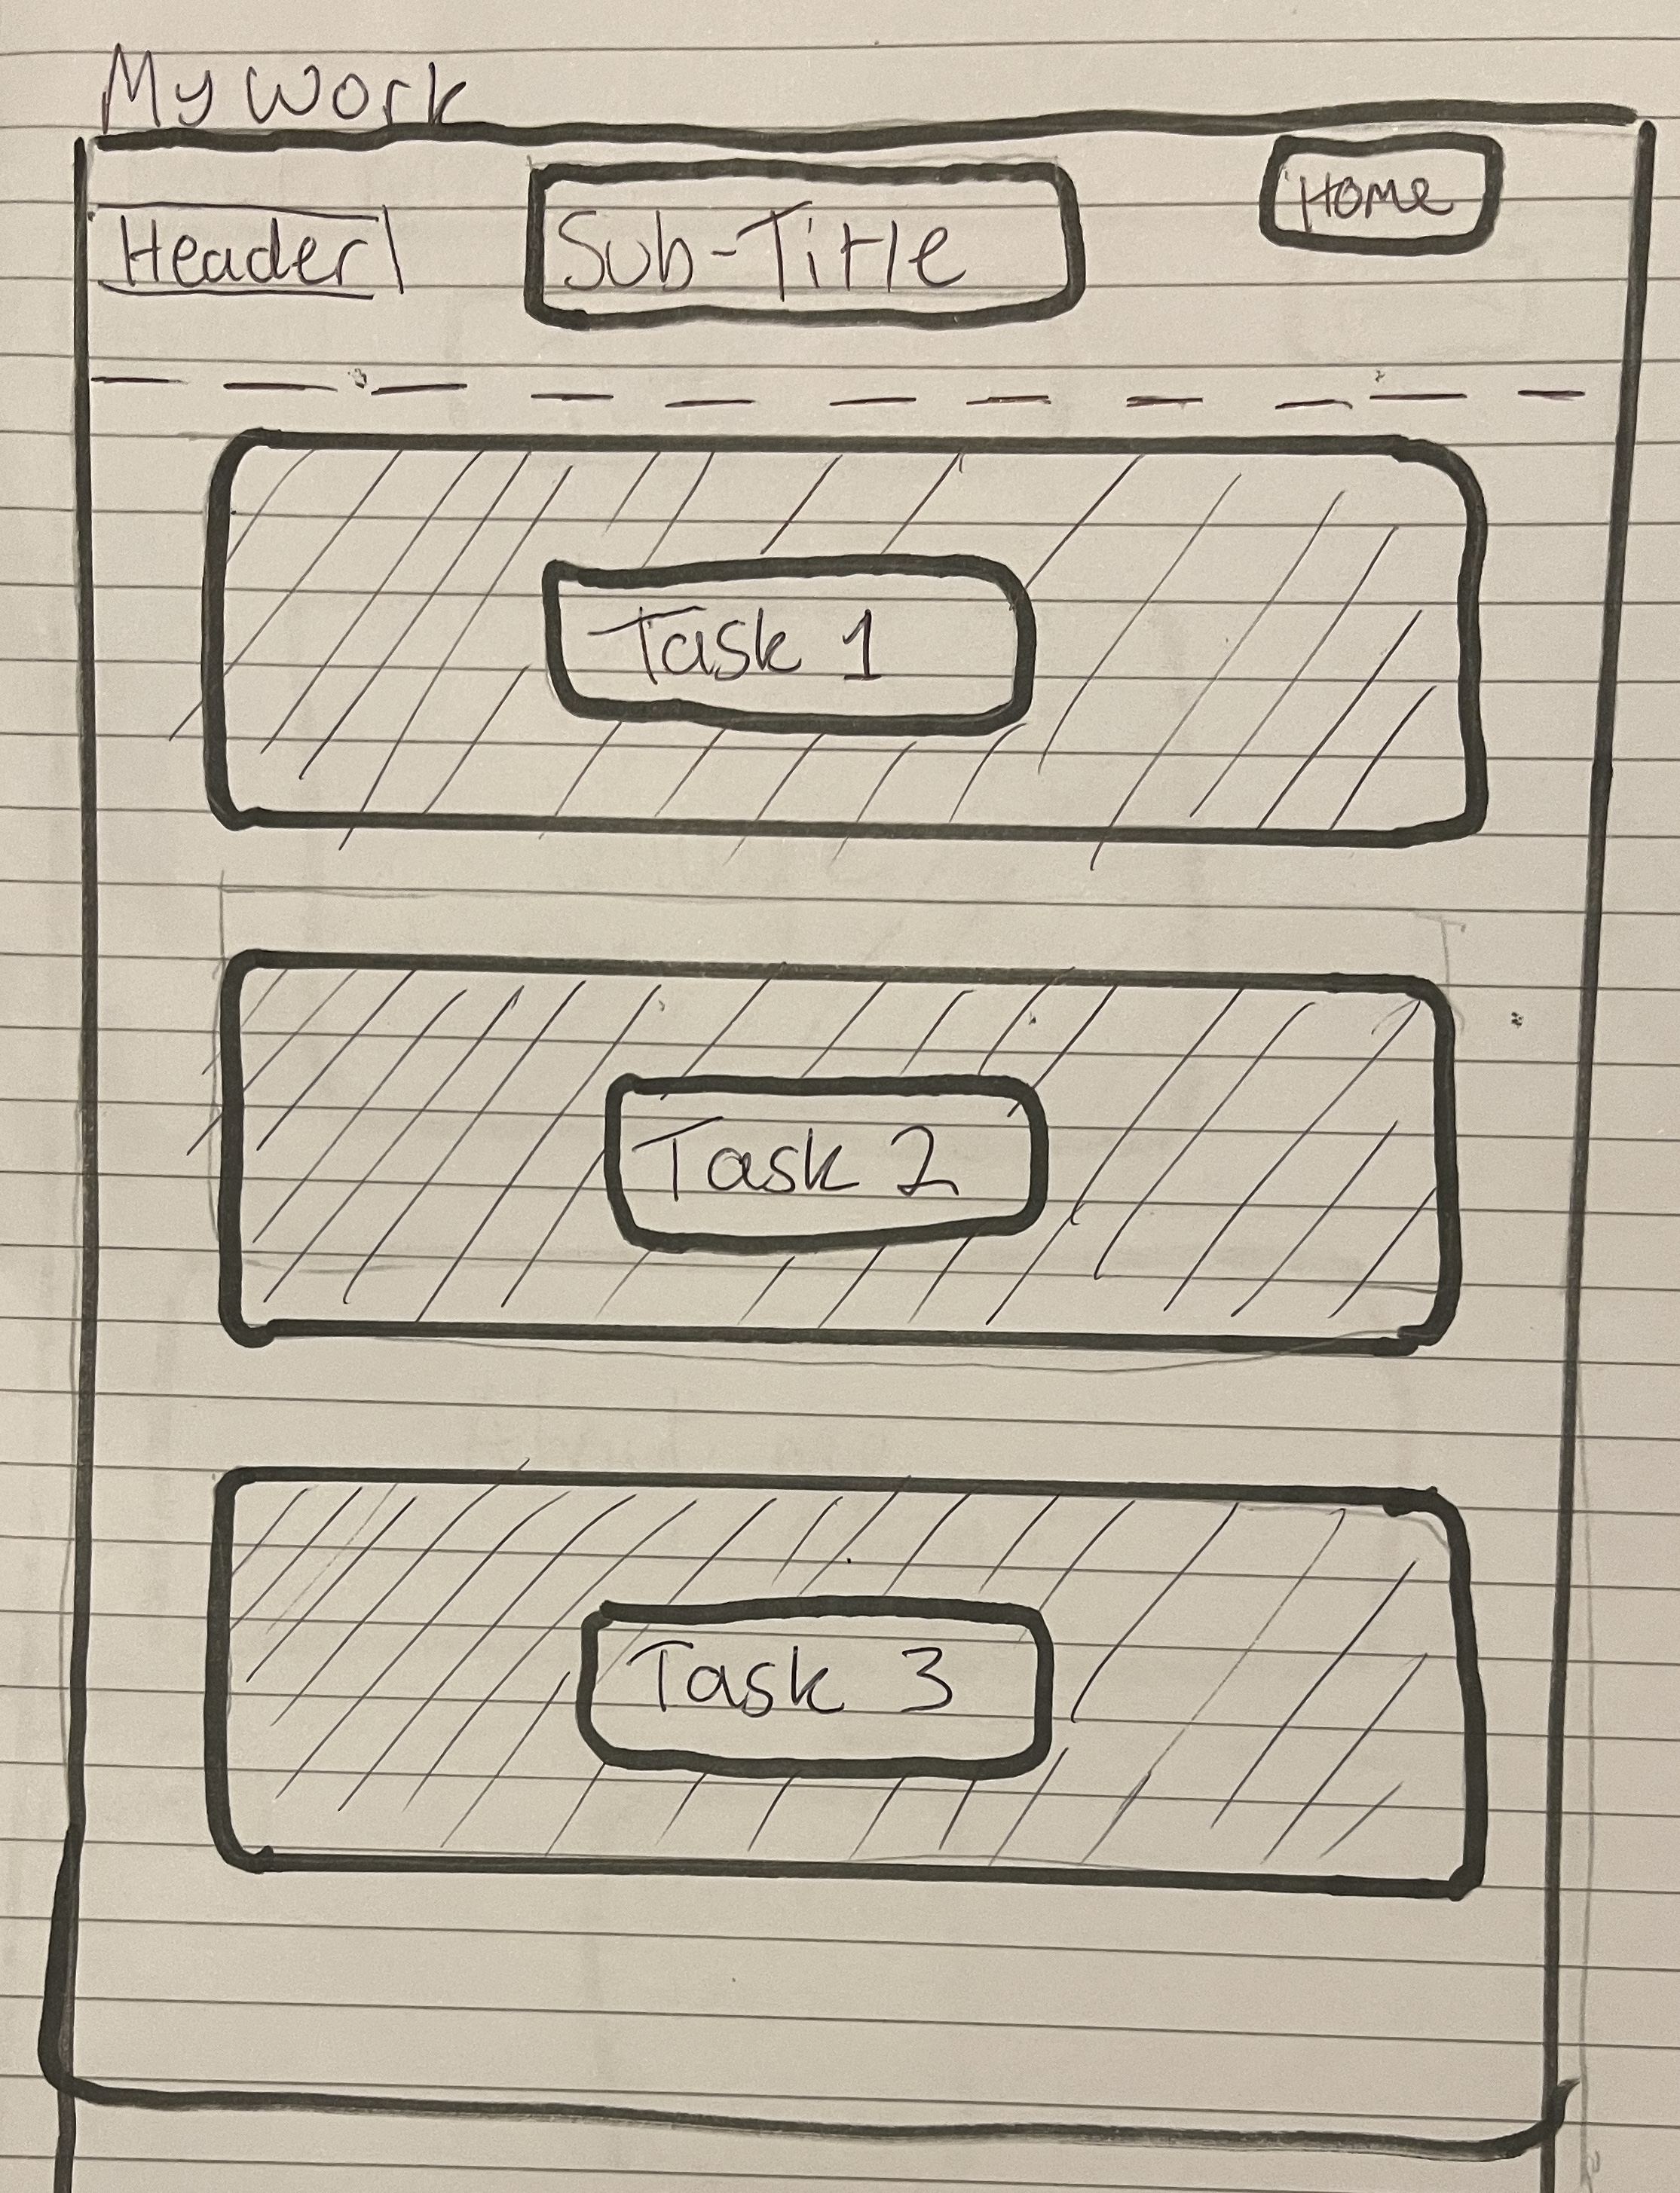 My Work
Header
Sub-Title
Home
Task 1
Task 2
Task 3